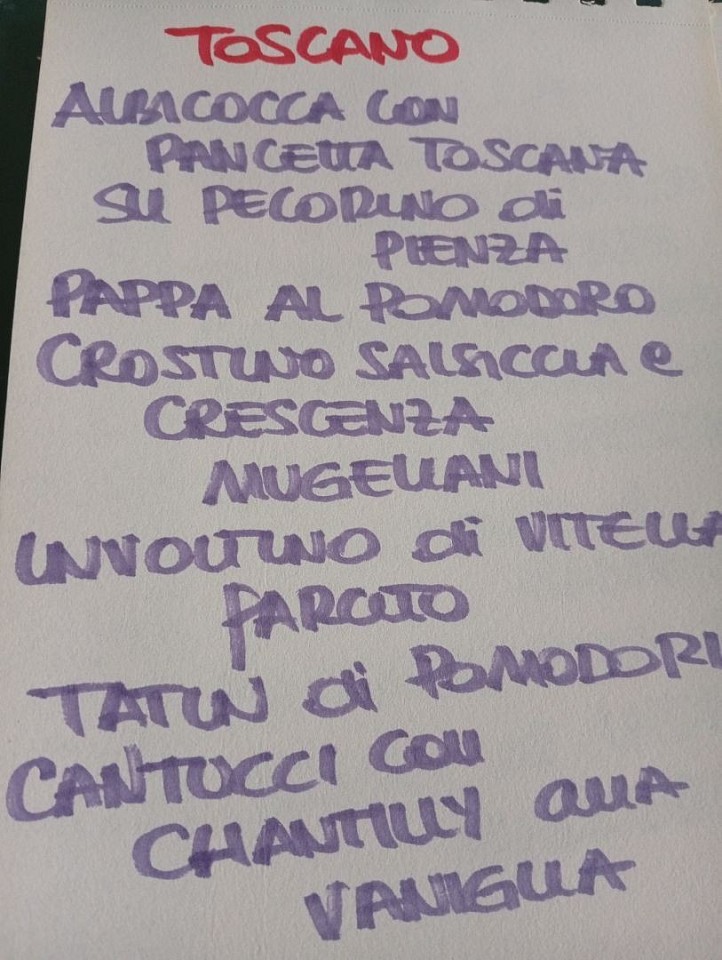 TOSCANO
ALBICOCCA CON
PANCETTA TOSCANA
SU PECORINO di
PIENZA
PAPPA AL POMODORO
CROSTINO SALSICCIA e
CRESCENZA
MUGELLANI
INVOLTINO di VITELLA
fARCITO
TATIN di POMODORI
CANTUCCI CON
CHANTILLY allA
VANIGLIA